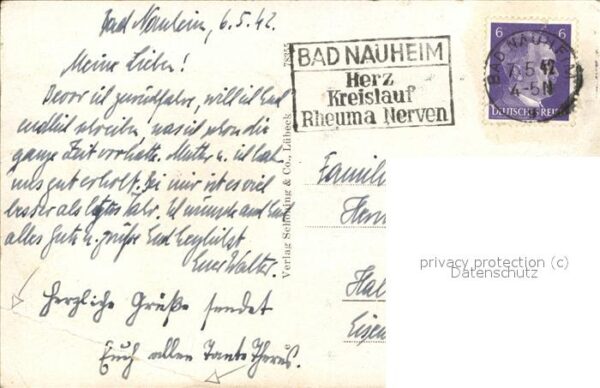 Bad Nauheim, 6.5.42.
Meine Lieben!
Bevor ich zurückfahre, will ich Euch
endlich schreiben, was ich schon die
ganze Zeit vorhatte. Mutter u. ich hab.
uns gut erholt. Bei mir ist es viel
besser als letztes Jahr. Ich wünsche auch Euch
alles Gute u. grüße Euch herzlichst
Euer Walter.
Herzliche Grüße sendet
Euch allen Tante Theres.
78355
Verlag Schöning & Co., Lübeck
BAD NAUHEIM
Herz
Kreislauf
Rheuma Nerven
6 6
BAD NAUHEIM
5.42
4-5N
DEUTSCHES REICH
Famili
Herm
Hal
Eisen
privacy protection (c)
Datenschutz